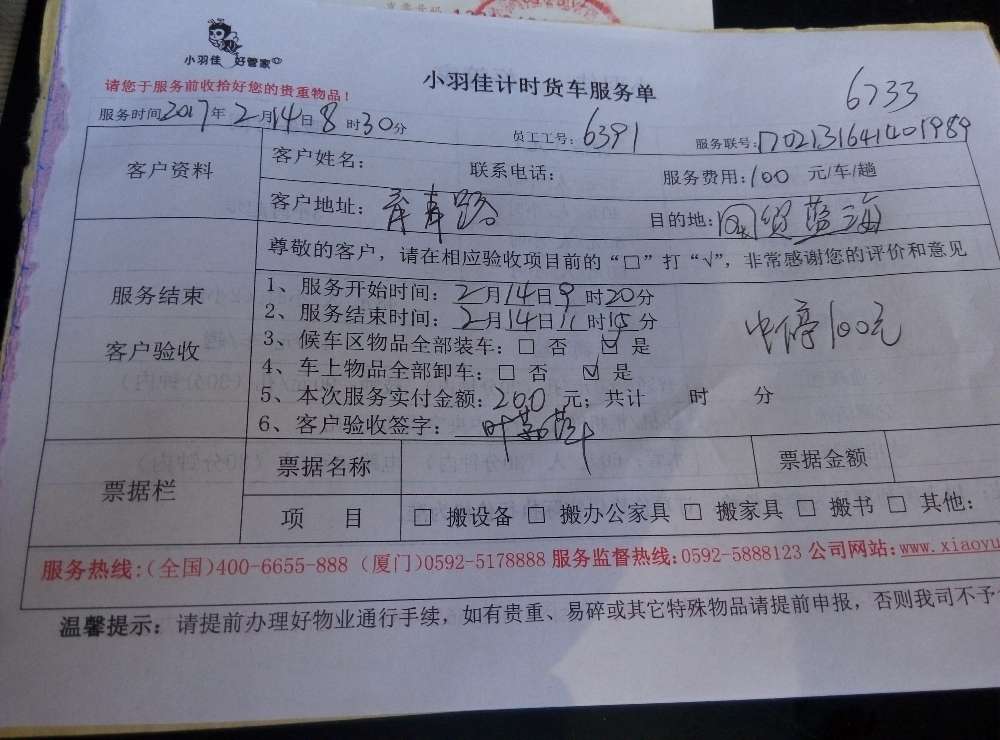 小羽佳 好管家
小羽佳计时货车服务单
6733
请您于服务前收拾好您的贵重物品！
服务时间2017年2月14日8时30分 员工工号：6391 服务联号：1702131641401989
客户资料
客户姓名： 联系电话： 服务费用：100 元/车/趟
客户地址： 目的地：国贸蓝海
尊敬的客户，请在相应验收项目前的“□”打“√”，非常感谢您的评价和意见
服务结束
客户验收
1、服务开始时间：2月14日9时20分
2、服务结束时间：2月14日11时15分
3、候车区物品全部装车：□ 否 ☑ 是
4、车上物品全部卸车：□ 否 ☑ 是
5、本次服务实付金额：200元；共计 时 分
6、客户验收签字：
中停100元
票据栏
票据名称 票据金额
项 目 □ 搬设备 □ 搬办公家具 □ 搬家具 □ 搬书 □ 其他：
服务热线：（全国）400-6655-888（厦门）0592-5178888 服务监督热线：0592-5888123 公司网站：www.xiaoyu
温馨提示：请提前办理好物业通行手续，如有贵重、易碎或其它特殊物品请提前申报，否则我司不予